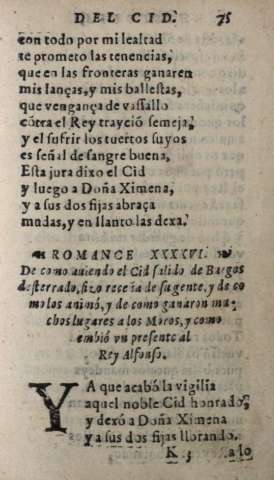 DEL CID. 75
con todo por mi lealtad
te prometo las tenencias,
que en las fronteras ganaren
mis lanças, y mis ballestas,
que vengança de vassallo
cõtra el Rey trayciõ semeja,
y el sufrir los tuertos suyos
es señal de sangre buena,
Esta jura dixo el Cid
y luego a Doña Ximena,
y a sus dos fijas abraça
mudas, y en llanto las dexa.
ROMANCE XXXXVI.
De como auiendo el Cid salido de Burgos
desterrado, fizo reseña de su gente, y de co
mo los animó, y de como ganaron mu-
chos lugares a los Moros, y como
embió vn presente al
Rey Alfonso.
YA que acabò la vigilia
aquel noble Cid honrado,
y dexò a Doña Ximena
y a sus dos fijas llorando.
K 3